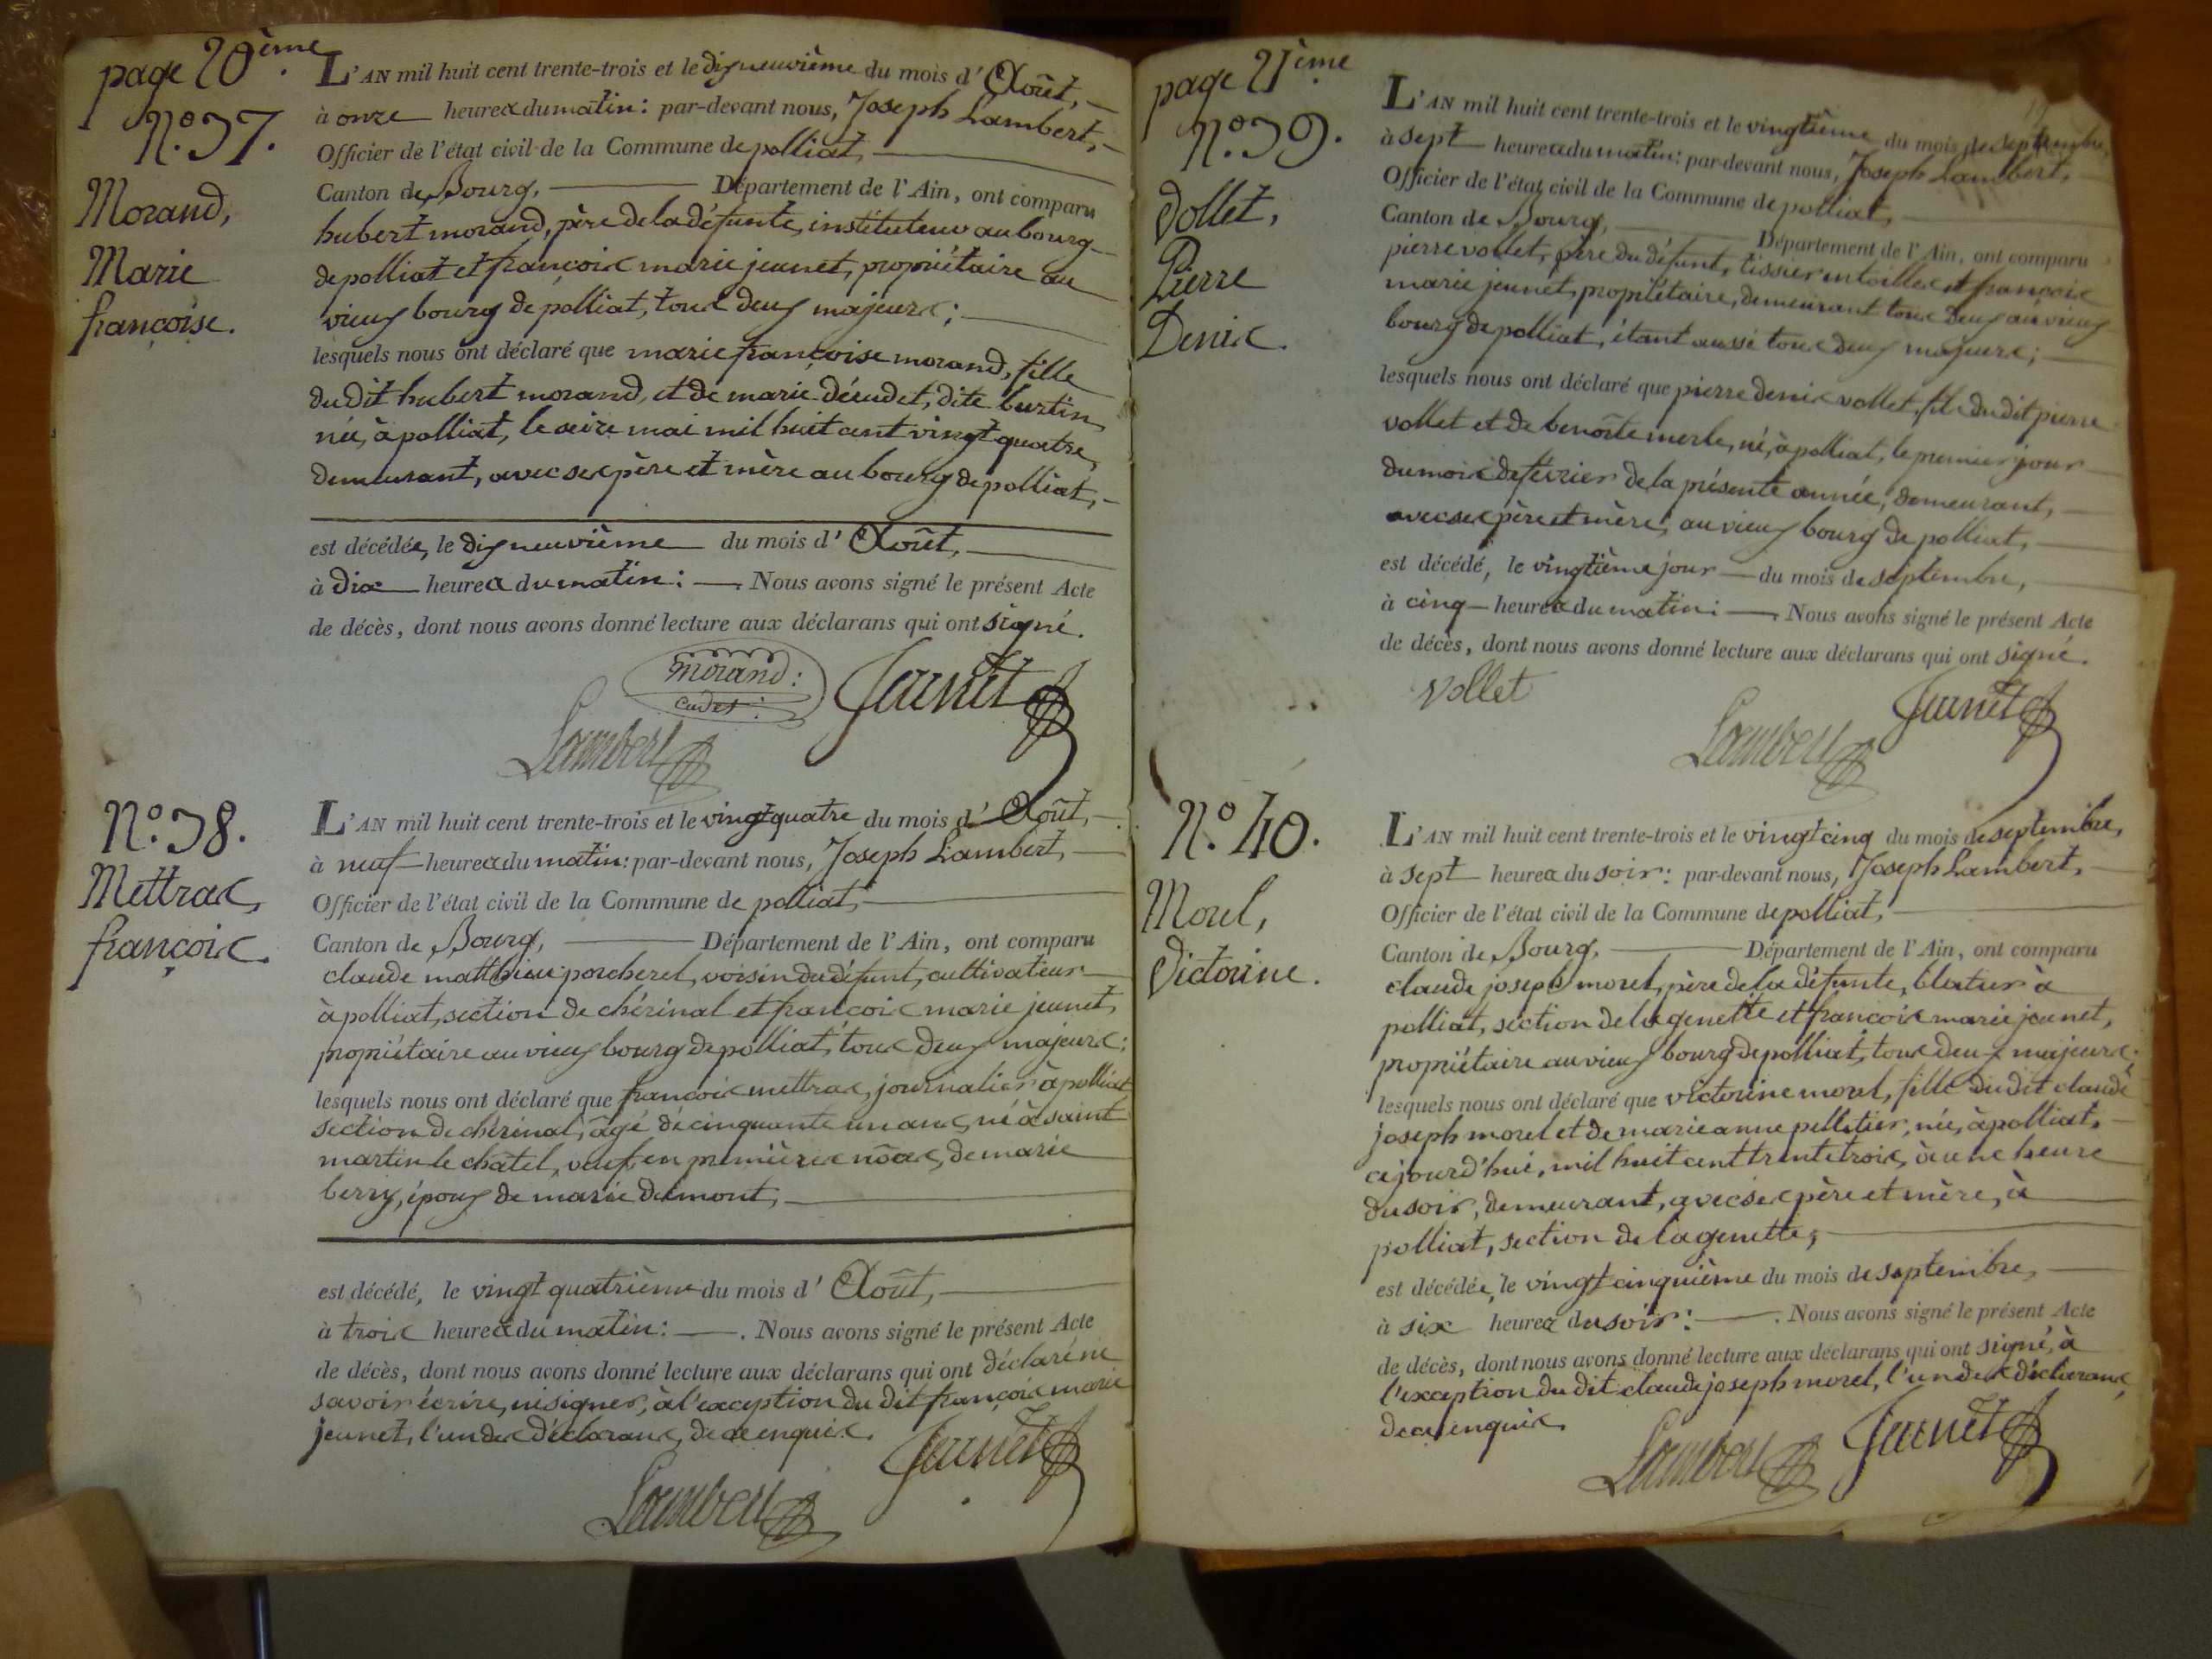 page 20ème.
N.º 37.
Morand,
Marie
françoise.
L'AN mil huit cent trente-trois et le dix neuvième du mois d' Août,
à onze heures du matin : par-devant nous, Joseph Lambert,
Officier de l'état civil de la Commune de polliat,
Canton de Bourg, Département de l'Ain, ont comparu
hubert morand, père de la défunte, instituteur au bourg
de polliat et françois marie jeunet, propriétaire au
vieux bourg de polliat, tous deux majeurs ;
lesquels nous ont déclaré que marie françoise morand, fille
du dit hubert morand, et de marie décudet, dite burtin,
née, à polliat, le seize mai mil huit cent vingt quatre,
demeurant, avec ses père et mère au bourg de polliat,
est décédée, le dix neuvième du mois d' Août,
à dix heures du matin : Nous avons signé le présent Acte
de décès, dont nous avons donné lecture aux déclarans qui ont signé.
morand :
Jeunet
Lambert
N.º 38.
Mettras,
françois.
L'AN mil huit cent trente-trois et le vingt quatre du mois d' Août,
à neuf heures du matin : par-devant nous, Joseph Lambert,
Officier de l'état civil de la Commune de polliat,
Canton de Bourg, Département de l'Ain, ont comparu
claude matthieu porcheret, voisin du défunt, cultivateur
à polliat, section de chérinal et françois marie jeunet,
propriétaire au vieux bourg de polliat, tous deux majeurs ;
lesquels nous ont déclaré que françois mettras, journalier à polliat
section de chérinal, âgé de cinquante un ans, né à saint
martin le châtel, veuf, en premières nôces, de marie
berry, époux de marie dumont,
est décédé, le vingt quatrième du mois d' Août,
à trois heures du matin : . Nous avons signé le présent Acte
de décès, dont nous avons donné lecture aux déclarans qui ont déclaré ne
savoir écrire, ni signer, à l'exception du dit françois marie
jeunet, l'un des déclarans, de ce enquis.
Jeunet
Lambert
page 21ème
N.º 39.
Vollet,
Pierre
Denis.
L'AN mil huit cent trente-trois et le vingtième du mois de septembre,
à sept heures du matin : par-devant nous, Joseph Lambert,
Officier de l'état civil de la Commune de polliat,
Canton de Bourg, Département de l'Ain, ont comparu
pierre vollet, père du défunt, tissier en toilles et françois
marie jeunet, propriétaire, demeurant tous deux au vieux
bourg de polliat, étant aussi tous deux majeurs ;
lesquels nous ont déclaré que pierre denis vollet, fils du dit pierre
vollet et de benoîte merle, né, à polliat, le premier jour
du mois de février de la présente année, demeurant,
avec ses père et mère, au vieux bourg de polliat,
est décédé, le vingtième jour du mois de septembre,
à cinq heures du matin : Nous avons signé le présent Acte
de décès, dont nous avons donné lecture aux déclarans qui ont signé.
Vollet
Jeunet
Lambert
N.º 40.
Morel,
Victorine.
L'AN mil huit cent trente-trois et le vingt cinq du mois de septembre,
à sept heures du soir : par-devant nous, Joseph Lambert,
Officier de l'état civil de la Commune de polliat,
Canton de Bourg, Département de l'Ain, ont comparu
claude joseph morel, père de la défunte, blatier à
polliat, section de la genette et françois marie jeunet,
propriétaire au vieux bourg de polliat, tous deux majeurs ;
lesquels nous ont déclaré que victorine morel, fille du dit claude
joseph morel et de marie anne pelletier, née, à polliat,
cejourd'hui, mil huit cent trente trois, à une heure
du soir, demeurant, avec ses père et mère, à
polliat, section de la genette,
est décédée, le vingt cinquième du mois de septembre,
à six heures du soir : . Nous avons signé le présent Acte
de décès, dont nous avons donné lecture aux déclarans qui ont signé, à
l'exception du dit claude joseph morel, l'un des déclarans,
de ce enquis.
Jeunet
Lambert